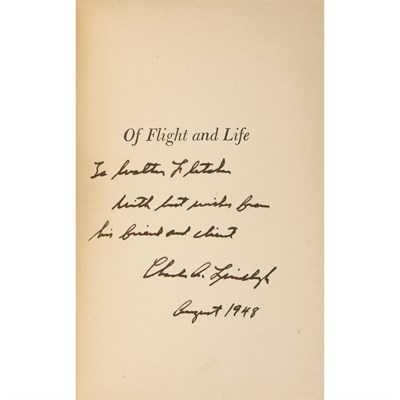 Of Flight and Life
To Walter Fletcher
With best wishes from
his friend and client
Charles A. Lindbergh
August 1948